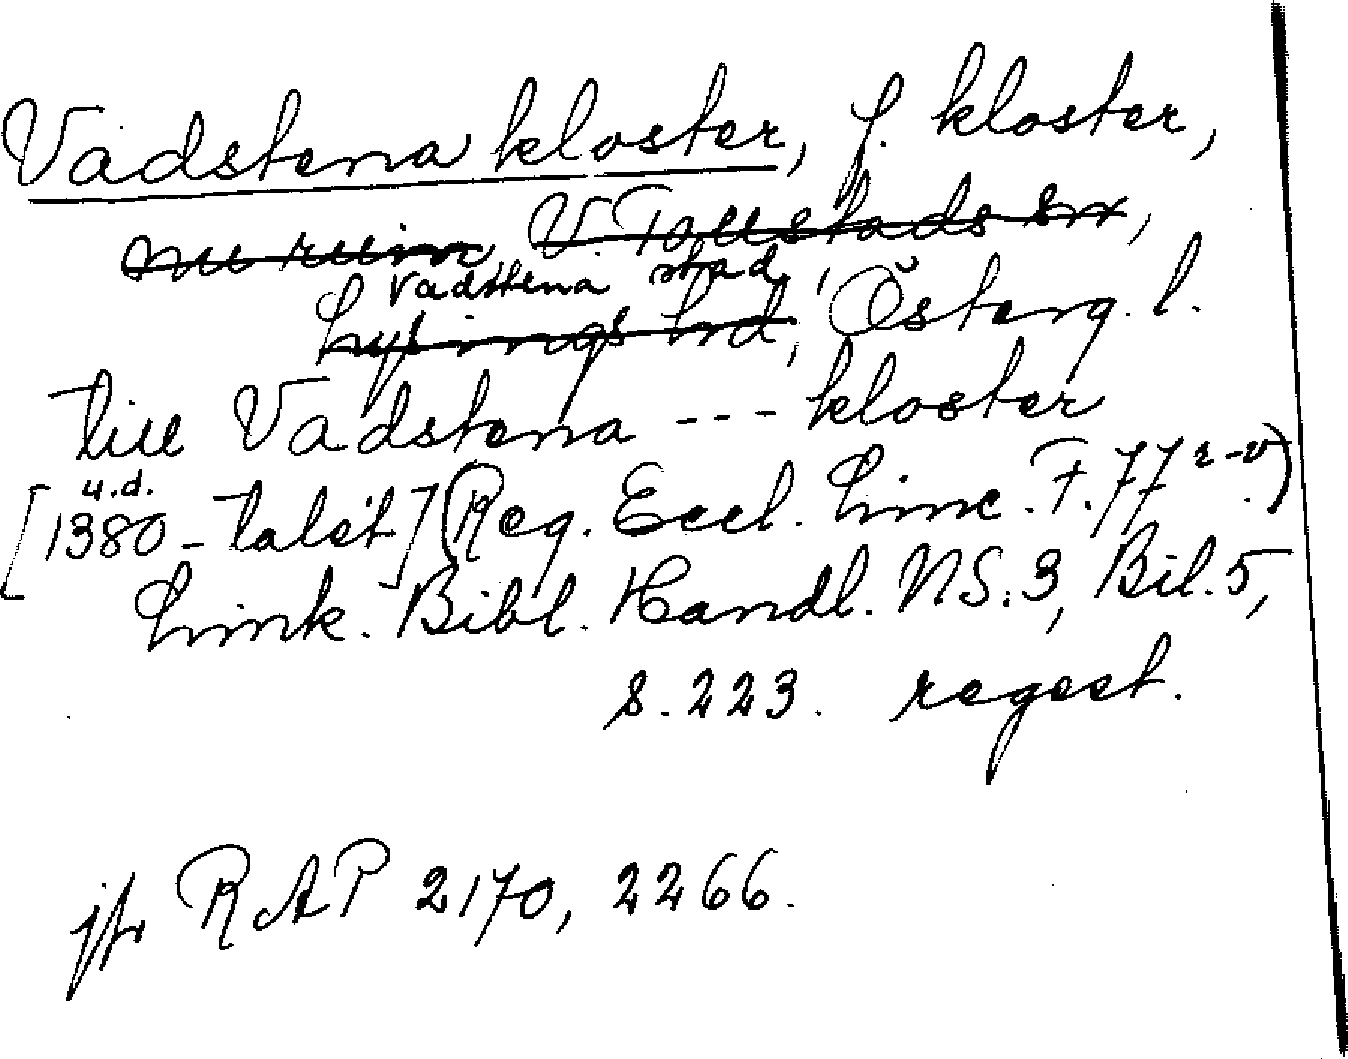 Vadstena kloster, f. kloster,
nu ruin, V. Tollstads sn,
Vadstena stad,
Lysings hrd, Österg. l.
till Vadstena --- kloster
u.d.
[1380-talet] (Reg. Eccl. Linc. F. 77 r-v.)
Link. Bibl. Handl. NS. 3, Bil. 5,
s. 223. regest.
jfr RAP 2170, 2266.